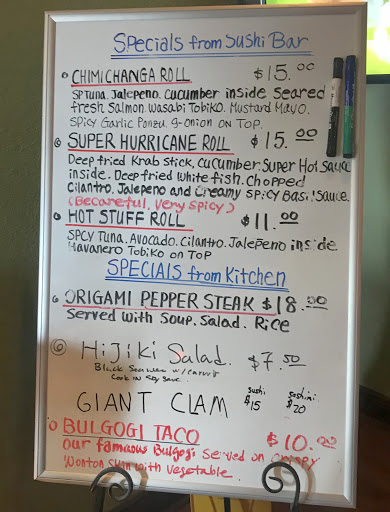 Specials from Sushi Bar
CHIMICHANGA ROLL $15.00
SPTuna. Jalepeno. Cucumber inside Seared
fresh Salmon. Wasabi Tobiko. Mustard Mayo.
Spicy Garlic Ponzu. g-onion on TOP.
SUPER HURRICANE ROLL $15.00
Deep fried Krab stick, cucumber. Super Hot Sauce
inside. Deep fried white fish. Chopped
Cilantro. Jalepeno and Creamy Spicy Basil Sauce.
(Be careful. Very Spicy)
HOT STUFF ROLL $11.00
SPCY Tuna. Avocado. Cilantro. Jalepeno inside
Havanero Tobiko on TOP
SPECIALS from Kitchen
ORIGAMI PEPPER STEAK $18.00
Served with Soup. Salad. Rice
Hijiki Salad. $7.50
Black Sea weed w/ carrot
Cook in Soy Sauce.
GIANT CLAM sushi $15 sashimi $20
BULGOGI TACO $10.00
our famous Bulgogi Served on crispy
Wonton Skin with vegetable.